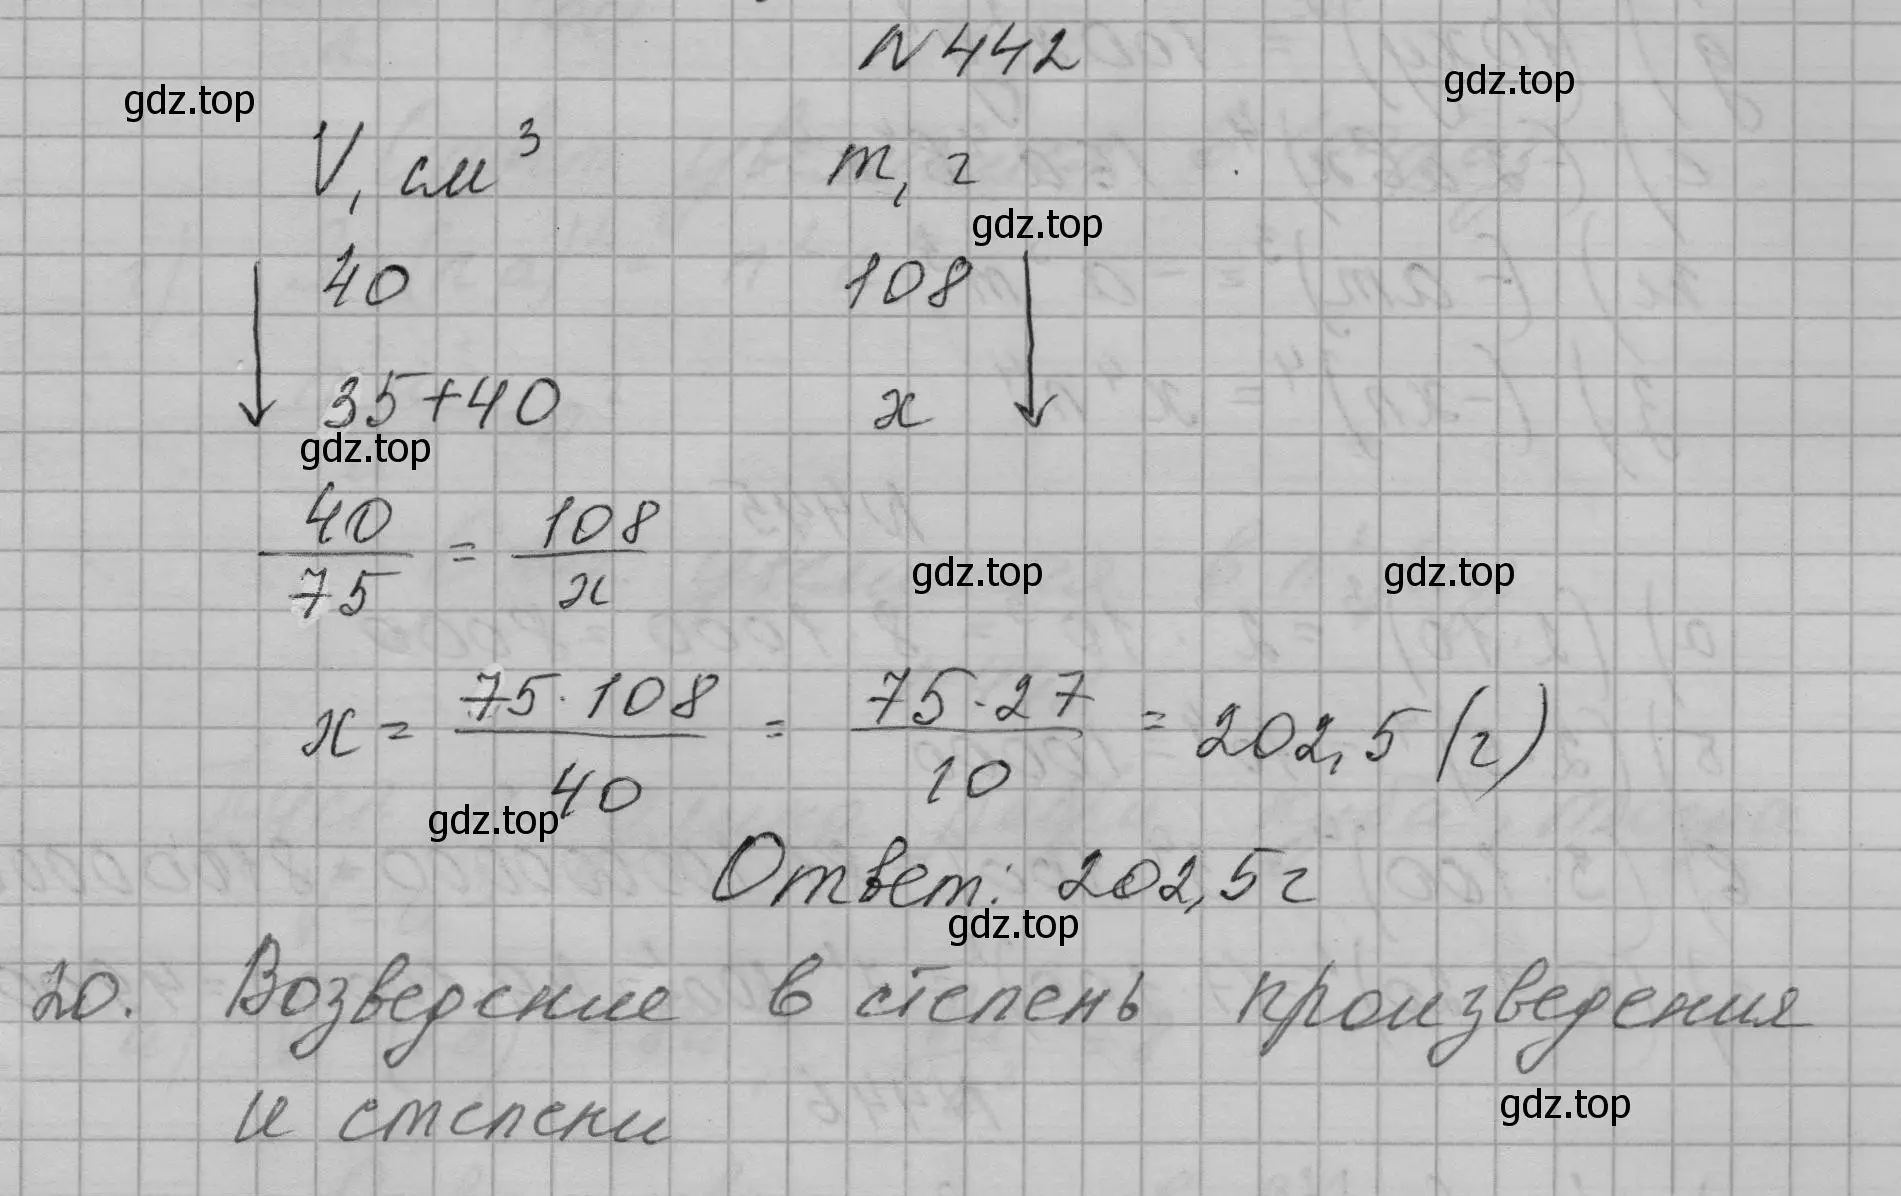 N 442
gdz.top gdz.top
V, см³ m, г
gdz.top
40 108
35+40 x
gdz.top
40/75 = 108/x
gdz.top gdz.top
x = 75·108/40 = 75·27/10 = 202,5 (г)
gdz.top
Ответ: 202,5 г
gdz.top
20. Возведение в степень произведения
и степени
gdz.top